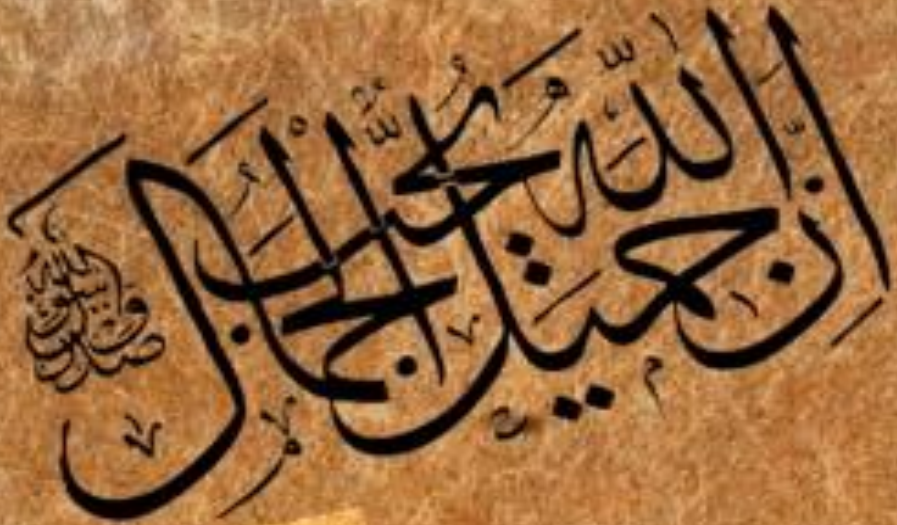 اِنَّ اللّٰهَ جَمِيلٌ يُحِبُّ الْجَمَالَ
صدق رسول الله